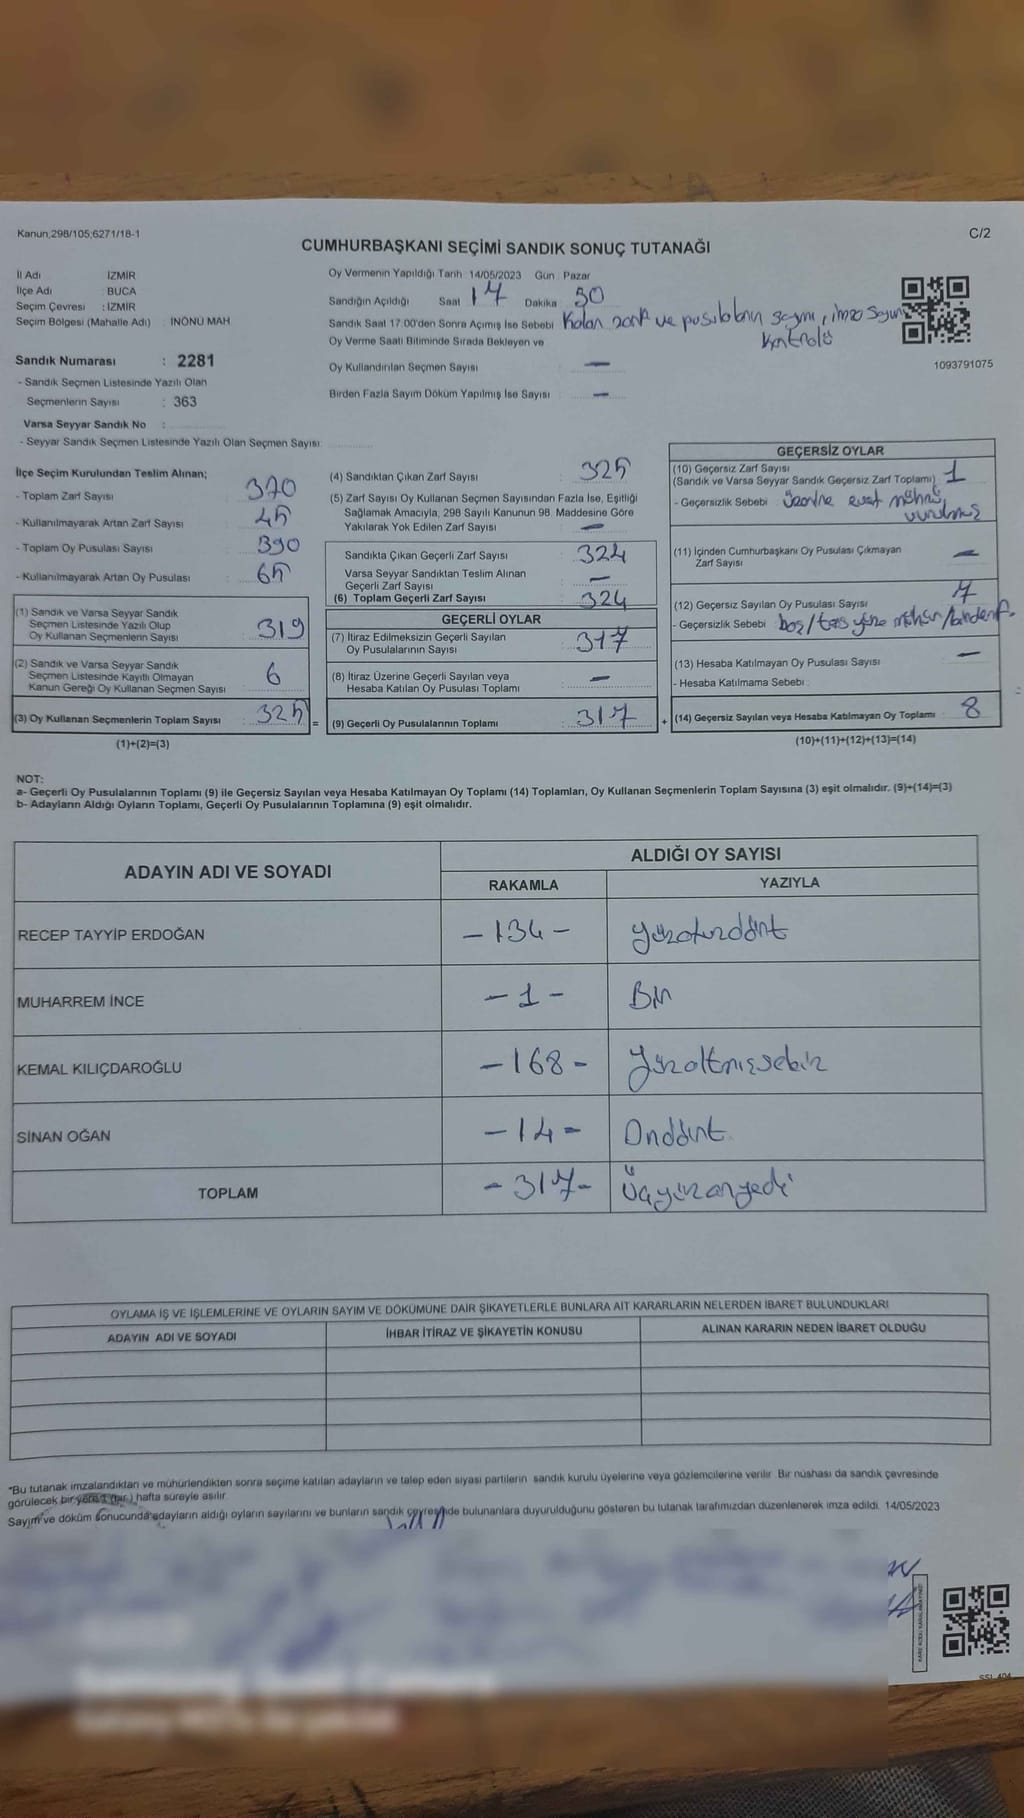 Kanun;298/105;6271/18-1
C/2
CUMHURBAŞKANI SEÇİMİ SANDIK SONUÇ TUTANAĞI
İl Adı İZMİR
İlçe Adı : BUCA
Seçim Çevresi : İZMİR
Seçim Bölgesi (Mahalle Adı) : İNÖNÜ MAH
Sandık Numarası : 2281
- Sandık Seçmen Listesinde Yazılı Olan
Seçmenlerin Sayısı : 363
Varsa Seyyar Sandık No :
- Seyyar Sandık Seçmen Listesinde Yazılı Olan Seçmen Sayısı:
Oy Vermenin Yapıldığı Tarih :14/05/2023 Gün : Pazar
Sandığın Açıldığı Saat 17 Dakika 30
Sandık Saat 17:00'den Sonra Açımış İse Sebebi Kalan zarf ve pusulaların sayımı, imza sayımı
kontrolü
Oy Verme Saati Bitiminde Sırada Bekleyen ve
Oy Kullandırılan Seçmen Sayısı : —
Birden Fazla Sayım Döküm Yapılmış İse Sayısı : —
1093791075
İlçe Seçim Kurulundan Teslim Alınan;
- Toplam Zarf Sayısı 370
- Kullanılmayarak Artan Zarf Sayısı 45
- Toplam Oy Pusulası Sayısı 390
- Kullanılmayarak Artan Oy Pusulası 65
(1) Sandık ve Varsa Seyyar Sandık
Seçmen Listesinde Yazılı Olup
Oy Kullanan Seçmenlerin Sayısı 319
(2) Sandık ve Varsa Seyyar Sandık
Seçmen Listesinde Kayıtlı Olmayan
Kanun Gereği Oy Kullanan Seçmen Sayısı 6
(3) Oy Kullanan Seçmenlerin Toplam Sayısı 325 =
(1)+(2)=(3)
(4) Sandıktan Çıkan Zarf Sayısı : 325
(5) Zarf Sayısı Oy Kullanan Seçmen Sayısından Fazla İse, Eşitliği
Sağlamak Amacıyla, 298 Sayılı Kanunun 98. Maddesine Göre
Yakılarak Yok Edilen Zarf Sayısı : —
Sandıkta Çıkan Geçerli Zarf Sayısı : 324
Varsa Seyyar Sandıktan Teslim Alınan
Geçerli Zarf Sayısı : —
(6) Toplam Geçerli Zarf Sayısı : 324
GEÇERLİ OYLAR
(7) İtiraz Edilmeksizin Geçerli Sayılan
Oy Pusulalarının Sayısı : 317
(8) İtiraz Üzerine Geçerli Sayılan veya
Hesaba Katılan Oy Pusulası Toplamı : —
(9) Geçerli Oy Pusulalarının Toplamı : 317 +
GEÇERSİZ OYLAR
(10) Geçersiz Zarf Sayısı
(Sandık ve Varsa Seyyar Sandık Geçersiz Zarf Toplamı) : 1
- Geçersizlik Sebebi : Üzerine evet mührü
vurulmuş
(11) İçinden Cumhurbaşkanı Oy Pusulası Çıkmayan
Zarf Sayısı : —
(12) Geçersiz Sayılan Oy Pusulası Sayısı : 7
- Geçersizlik Sebebi : boş/ters yöne mühür/birden f.
(13) Hesaba Katılmayan Oy Pusulası Sayısı : —
- Hesaba Katılmama Sebebi :
(14) Geçersiz Sayılan veya Hesaba Katılmayan Oy Toplamı : 8
(10)+(11)+(12)+(13)=(14)
NOT:
a- Geçerli Oy Pusulalarının Toplamı (9) ile Geçersiz Sayılan veya Hesaba Katılmayan Oy Toplamı (14) Toplamları, Oy Kullanan Seçmenlerin Toplam Sayısına (3) eşit olmalıdır. (9)+(14)=(3)
b- Adayların Aldığı Oyların Toplamı, Geçerli Oy Pusulalarının Toplamına (9) eşit olmalıdır.
ADAYIN ADI VE SOYADI ALDIĞI OY SAYISI
RAKAMLA YAZIYLA
RECEP TAYYİP ERDOĞAN -134- yüzotuzdört
MUHARREM İNCE -1- Bir
KEMAL KILIÇDAROĞLU -168- Yüzaltmışsekiz
SİNAN OĞAN -14- Ondört
TOPLAM -317- Üçyüzonyedi
OYLAMA İŞ VE İŞLEMLERİNE VE OYLARIN SAYIM VE DÖKÜMÜNE DAİR ŞİKAYETLERLE BUNLARA AİT KARARLARIN NELERDEN İBARET BULUNDUKLARI
ADAYIN ADI VE SOYADI İHBAR İTİRAZ VE ŞİKAYETİN KONUSU ALINAN KARARIN NEDEN İBARET OLDUĞU
*Bu tutanak imzalandıktan ve mühürlendikten sonra seçime katılan adayların ve talep eden siyasi partilerin sandık kurulu üyelerine veya gözlemcilerine verilir. Bir nüshası da sandık çevresinde
görülecek bir yere 1 (bir) hafta süreyle asılır.
Sayım ve döküm sonucunda adayların aldığı oyların sayılarını ve bunların sandık çevresinde bulunanlara duyurulduğunu gösteren bu tutanak tarafımızdan düzenlenerek imza edildi. 14/05/2023